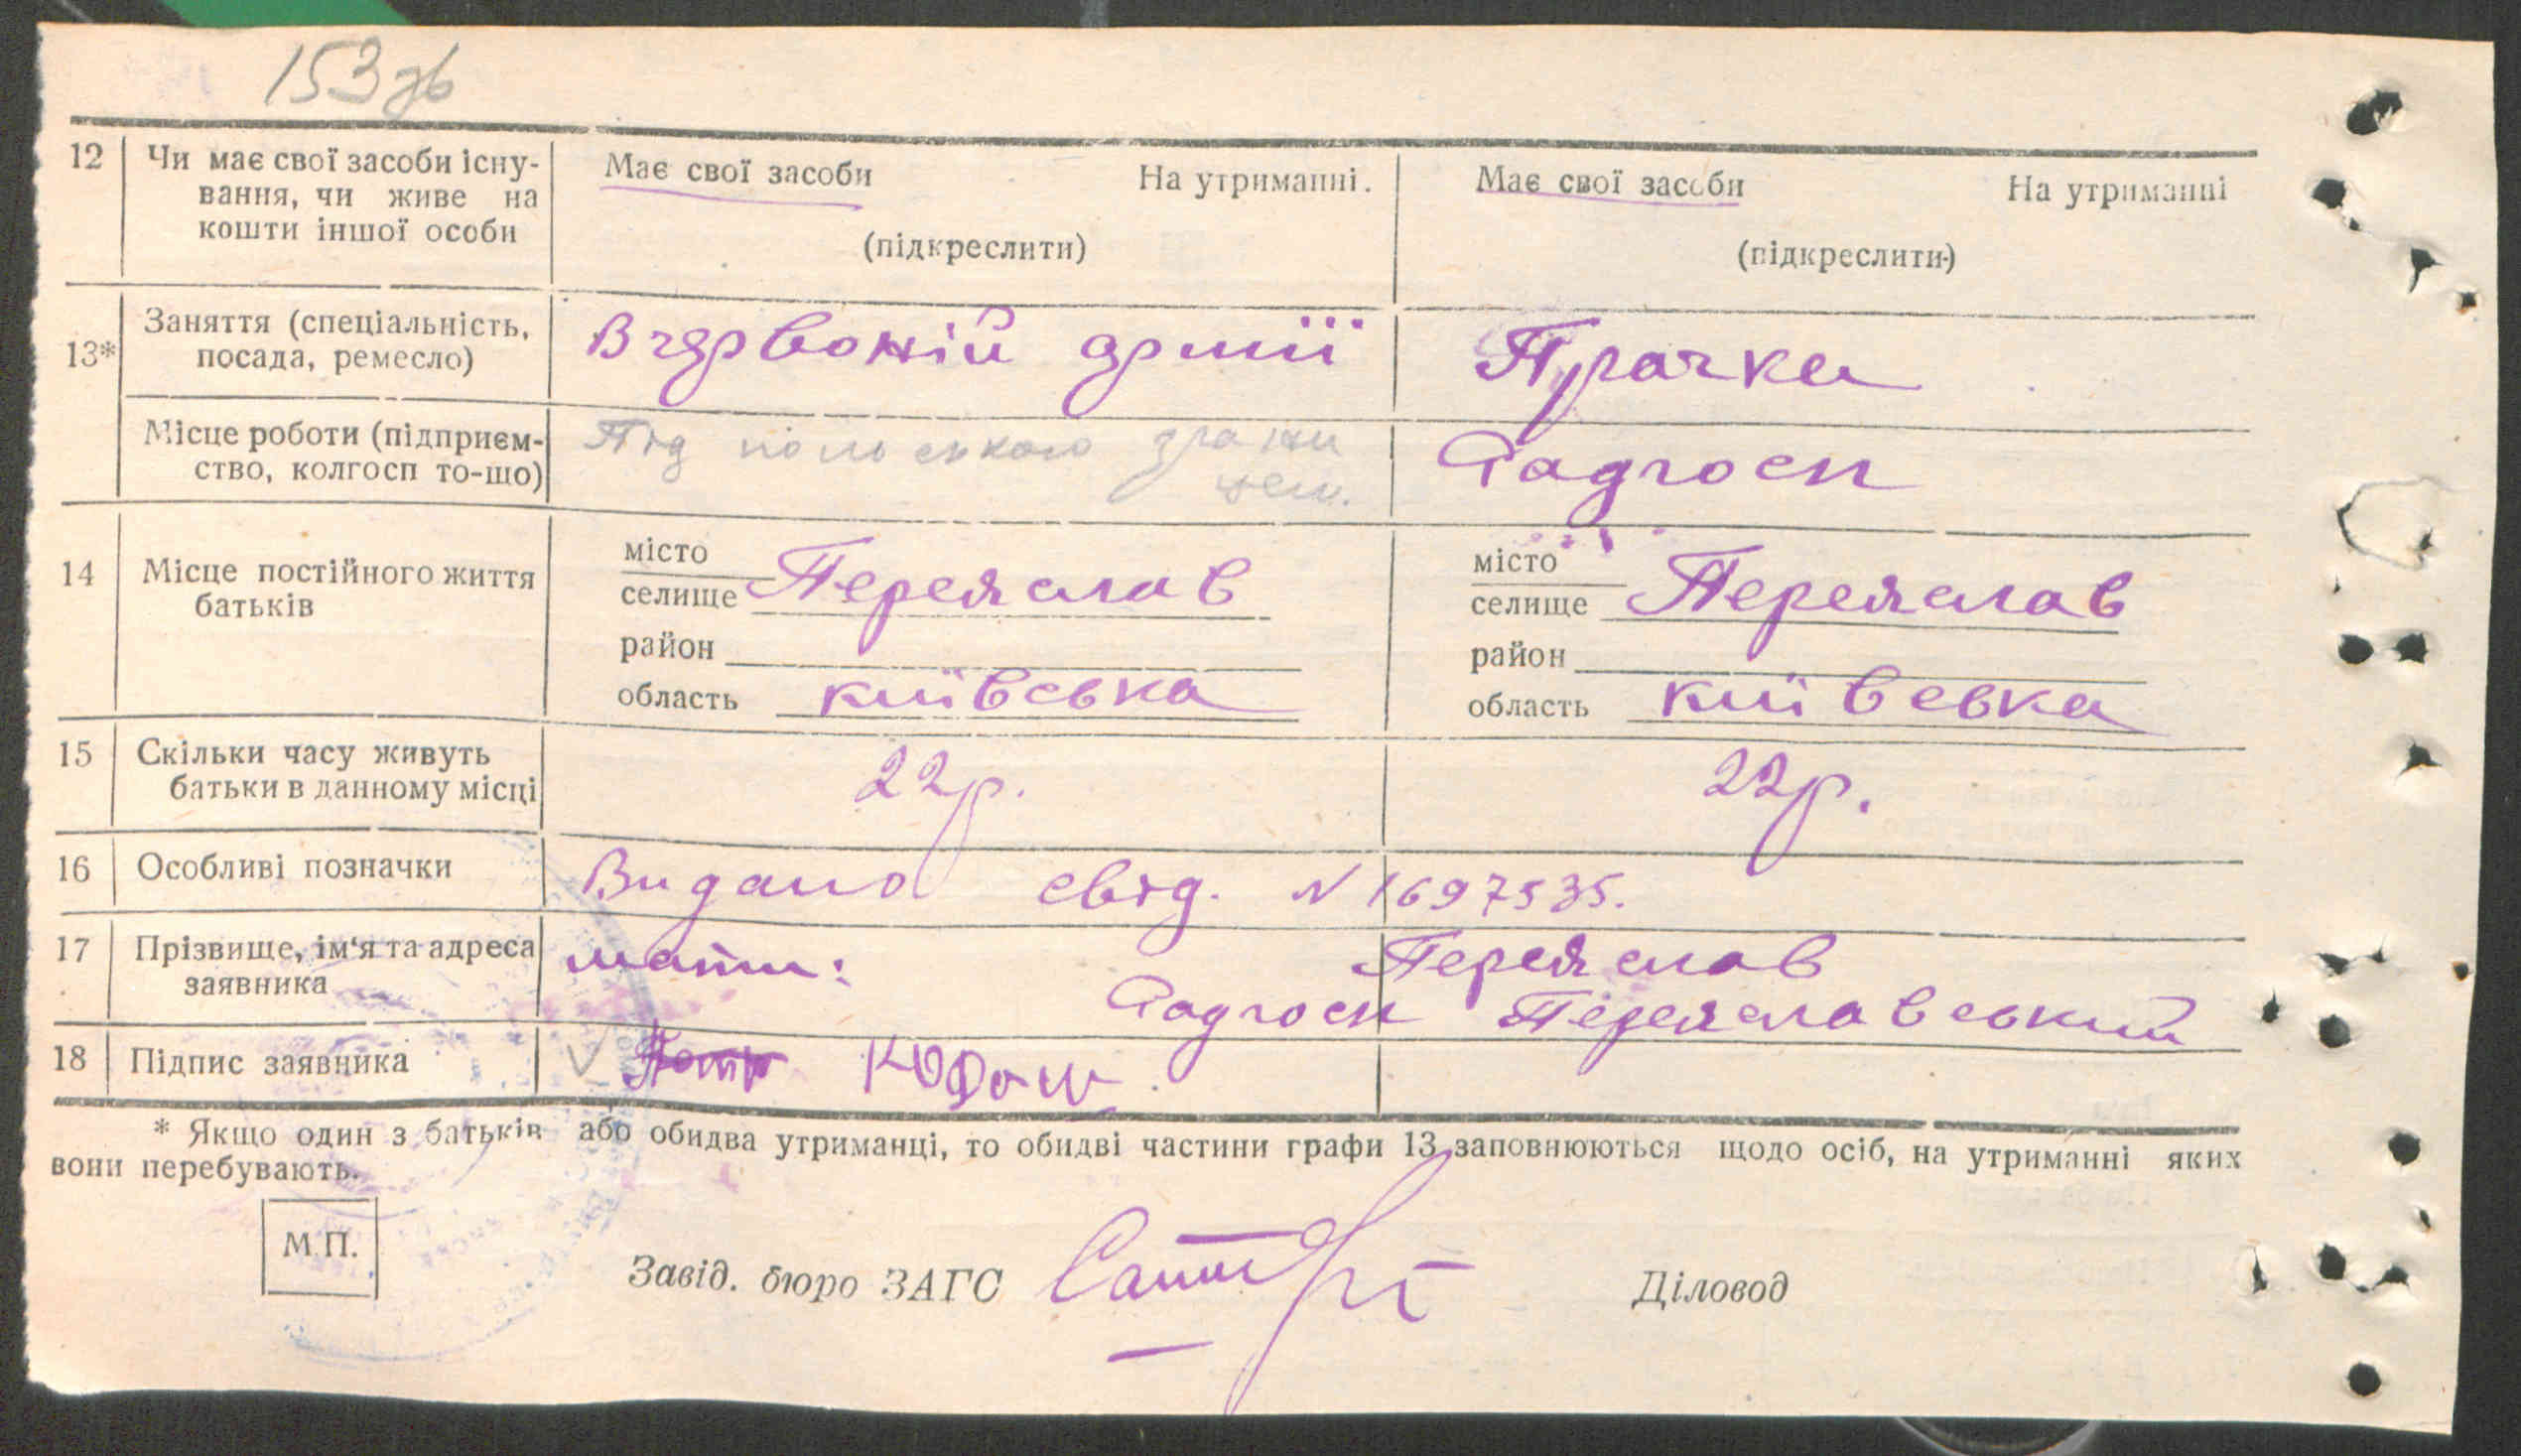 153 зв
12 Чи має свої засоби існу- Має свої засоби На утриманні. Має свої засоби На утриманні
вання, чи живе на
кошти іншої особи (підкреслити) (підкреслити)
13* Заняття (спеціальність, Вчярвоній армії Прачка
посада, ремесло)
Місце роботи (підприєм- Під польського Радгосп
ство, колгосп то-що)
14 Місце постійного життя місто Переяслав місто Переяслав
батьків селище селище
район район
область київська область київська
15 Скільки часу живуть 22р. 22р.
батьки в данному місці
16 Особливі позначки Видано свід. N 1697535.
17 Прізвище, ім'я та адреса мати: Переяслав
заявника Радгосп Переяславський
18 Підпис заявника
* Якщо один з батьків або обидва утриманці, то обидві частини графи 13 заповнюються щодо осіб, на утриманні яких
вони перебувають.
М.П.
Завід. бюро ЗАГС Діловод